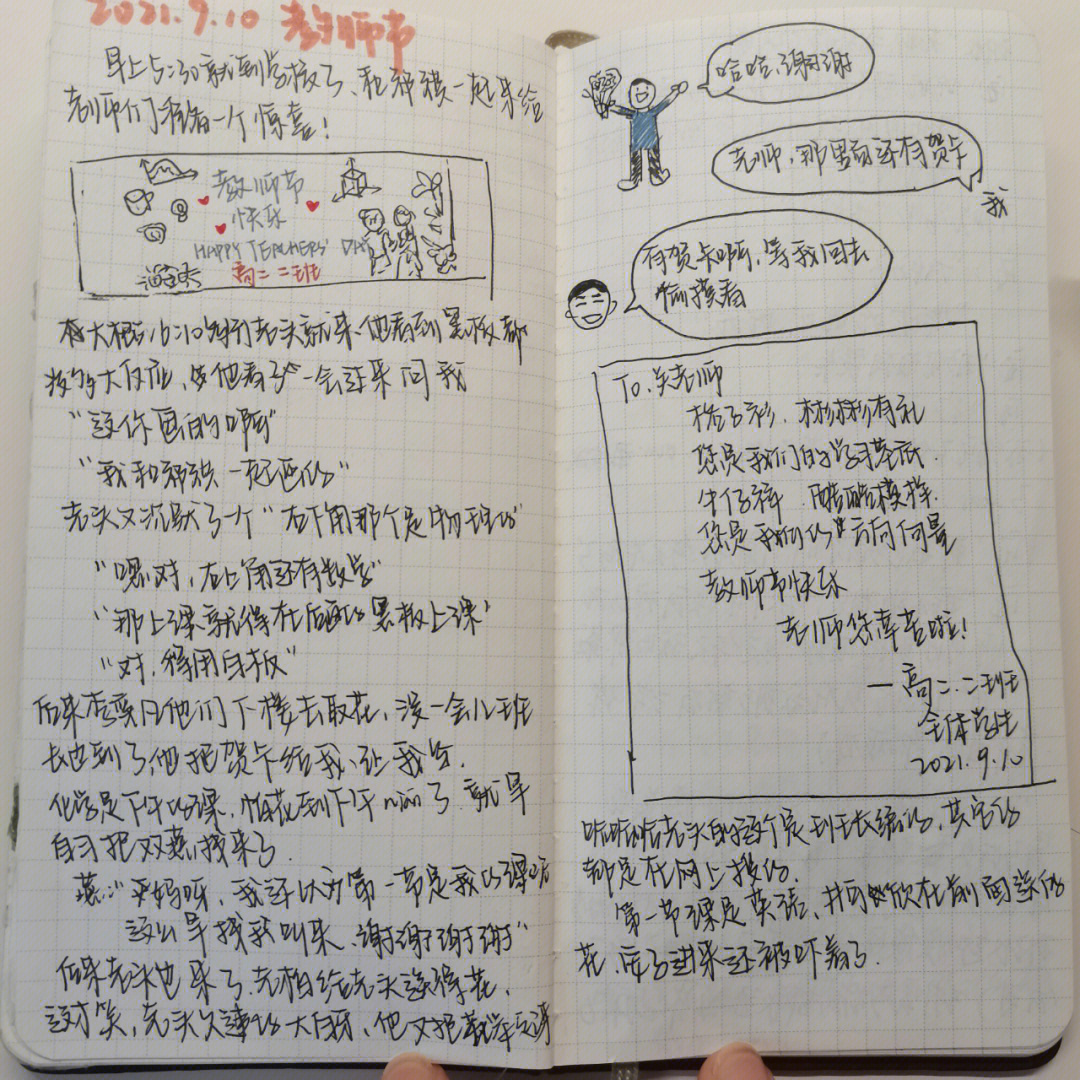 2021.9.10 教师节
早上5:30就到学校了、和祁祺一起来给
老师们准备一个惊喜!
教师节
快乐
HAPPY TEACHERS' DAY
高二二班
大概6:10的时候老头就来、他看到黑板都
没多大反应,他看了一会过来问我
“这你画的啊”
“我和祁祺一起画的”
老头又沉默了一个“右下角那个是物理的”
“嗯对,右上角还有数学”
“那上课就得在后面的黑板上课”
“对,得用白板”
后来李奕凡他们下楼去取花,没一会儿班
长也到了,他把贺卡给我、让我写.
化学是下午的课,怕花到下午蔫了.就早
自习把双燕找来了.
燕:“妈呀,我还以为第一节是我的课呢
这么早找我叫来、谢谢谢谢”
后来老头也来了,给老头送得花.
这才笑,老头久违的大白牙,他又
哈哈、谢谢
老师,那里面还有贺卡
我
有贺卡啊,等我回去
偷摸看
To.关老师
格子衫.彬彬有礼
您是我们的学习基底.
牛仔裤 酷酷模样.
您是我们的方向向量
教师节快乐
老师您辛苦啦!
—高二.二班
全体学生
2021.9.10
哈哈哈老头的这个是班长编的,其它的
都是在网上搜的.
第一节课是英语,欣在前面送的
花,进来还被吓着了.